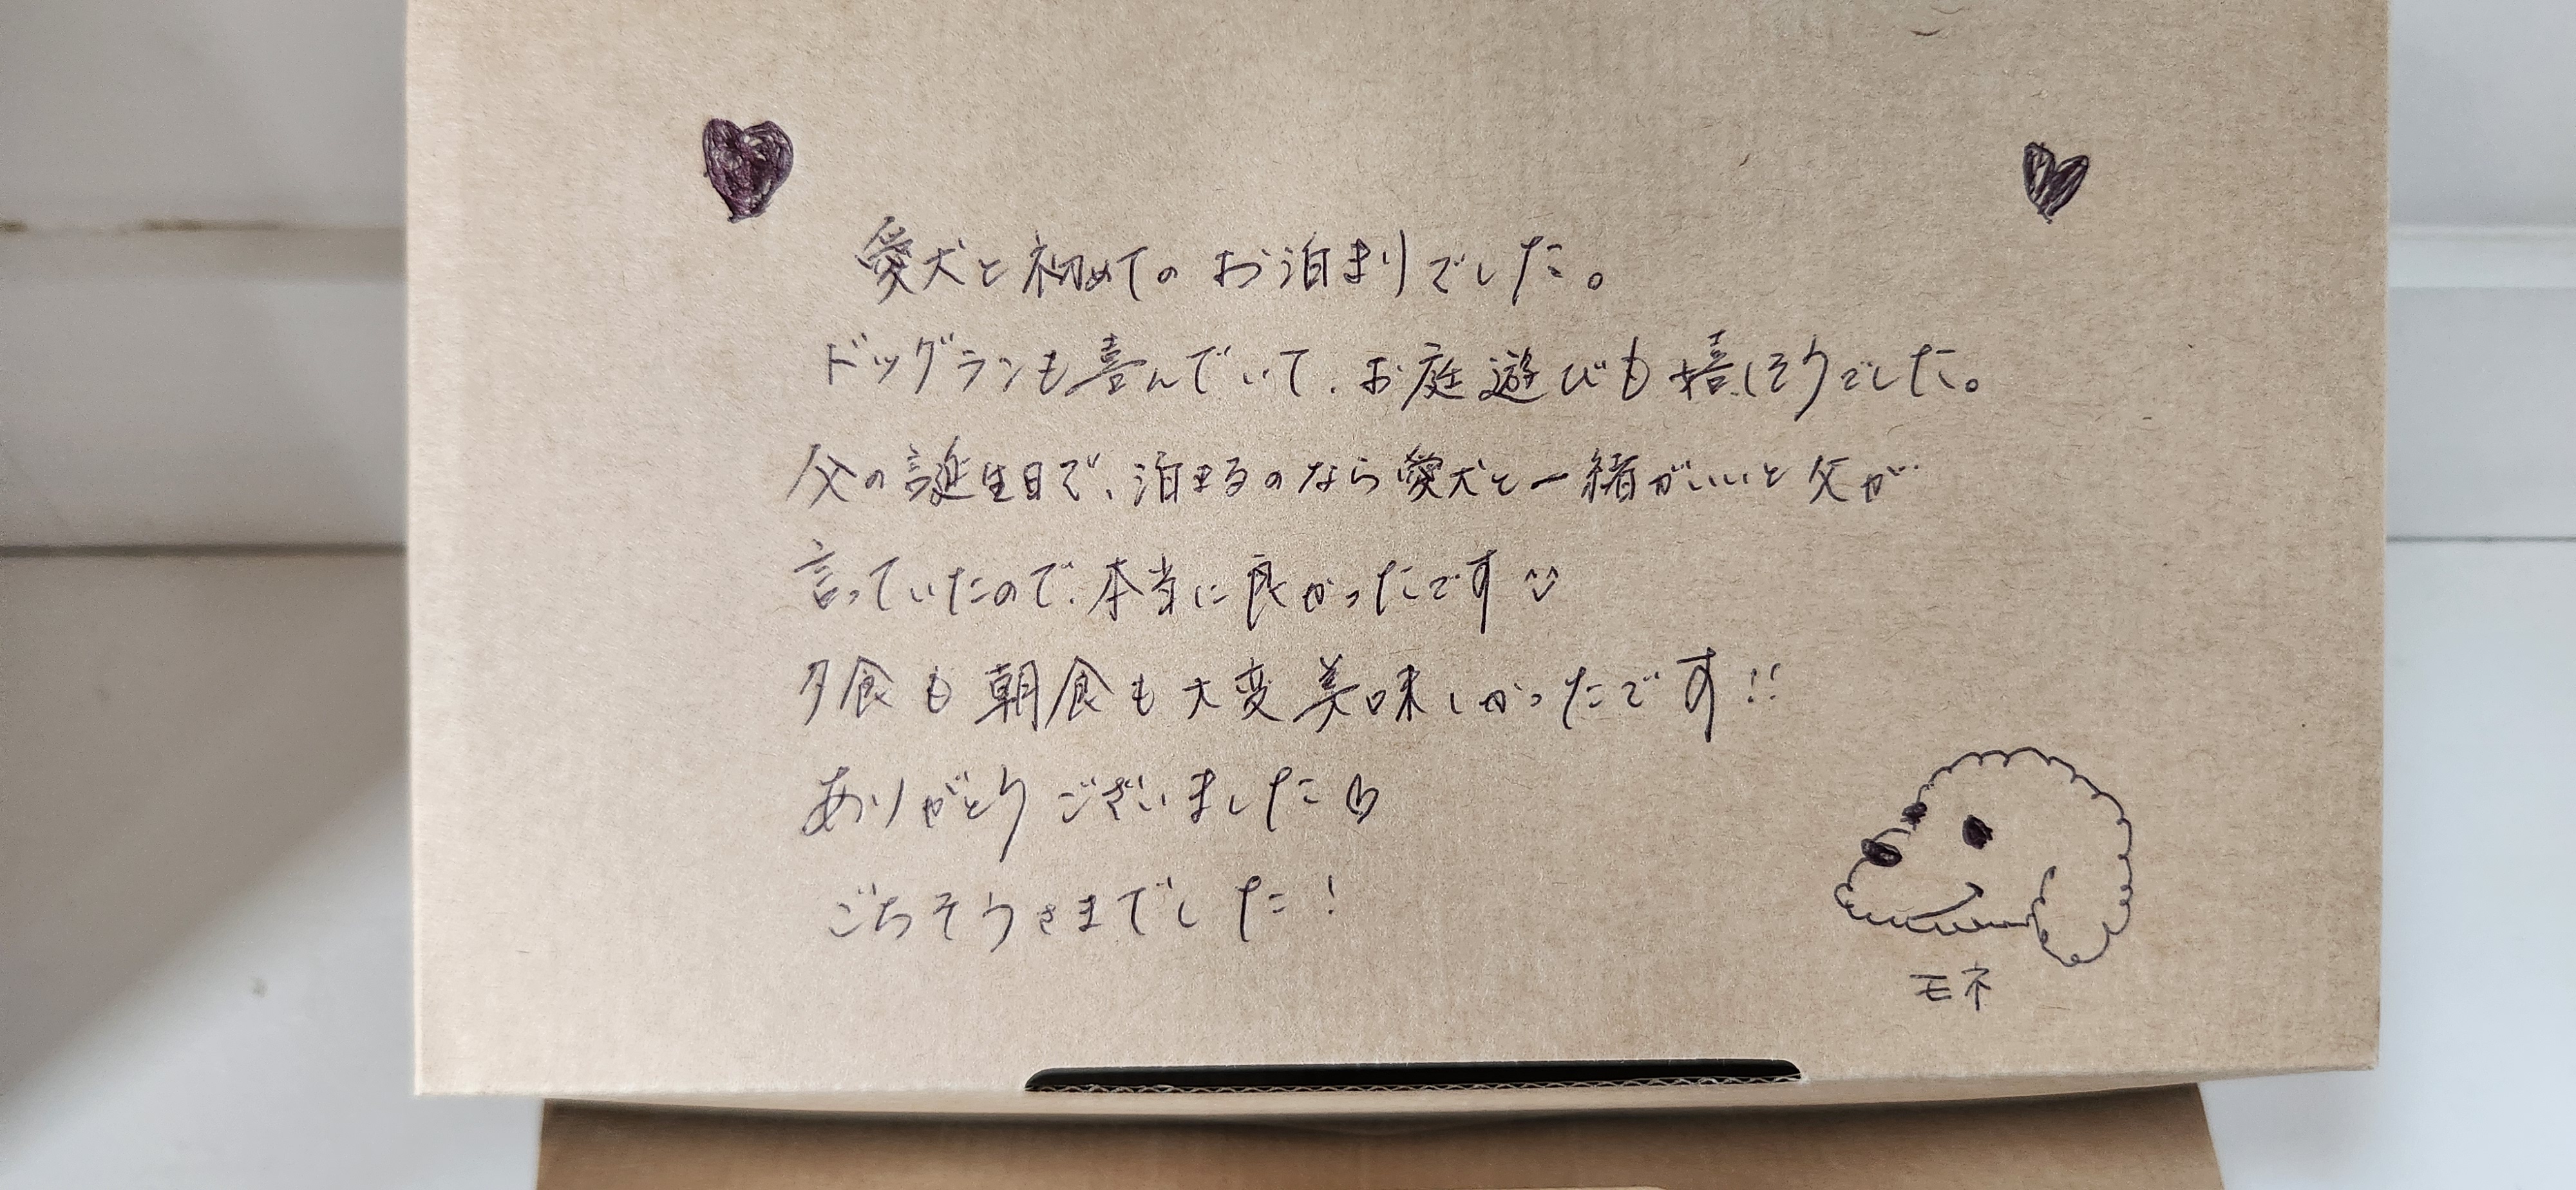 愛犬と初めてのお泊まりでした。
ドッグランも喜んでいて、お庭遊びも嬉しそうでした。
父の誕生日で、泊まるのなら愛犬と一緒がいいと父が
言っていたので、本当に良かったです
夕食も朝食も大変美味しかったです!!
ありがとうございました
ごちそうさまでした!
モネ